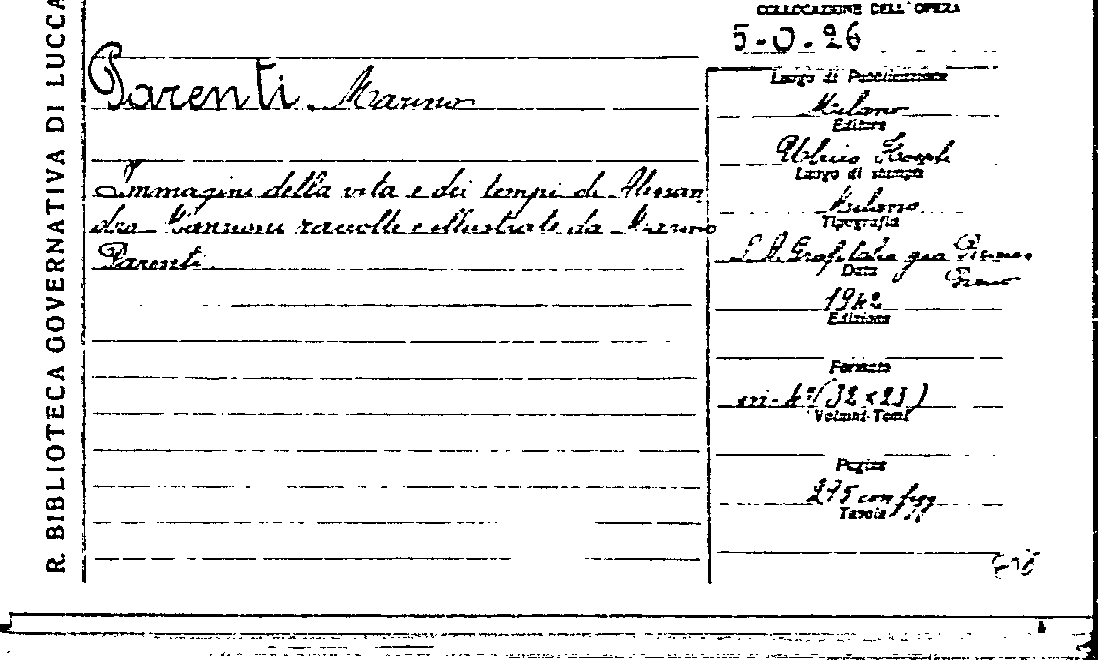 R. BIBLIOTECA GOVERNATIVA DI LUCCA
COLLOCAZIONE DELL'OPERA
5-O-26
Parenti Marino
Immagini della vita e dei tempi di Alessan
dro Manzoni raccolte e illustrate da Marino
Parenti.
Luogo di Pubblicazione
Milano
Editore
Ulrico Hoepli
Luogo di stampa
Milano
Tipografia
S. A. Grafitalia già
Data
1942
Edizione
Formato
in-4°(32x23)
Volumi-Tomi
Pagine
275 con figg
Tavole